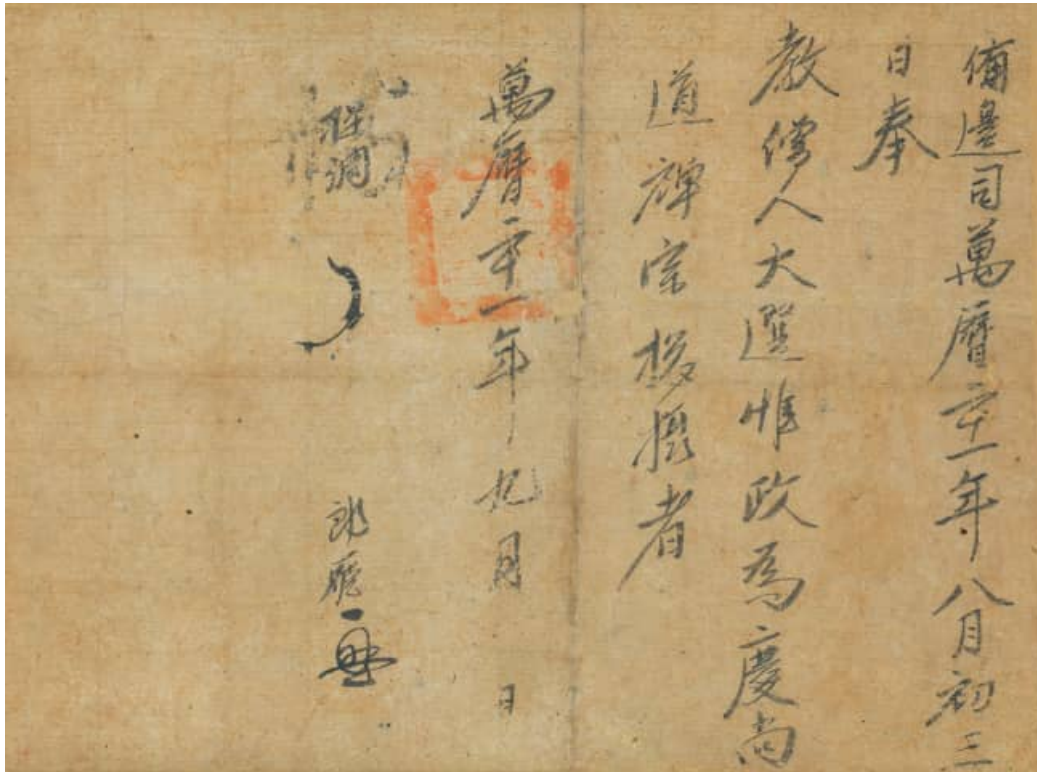 備邊司萬曆二十一年八月初三
日奉
教僧人大選惟政爲慶尚
道禪宗捴攝者
萬曆二十一年九月　日
郎廳